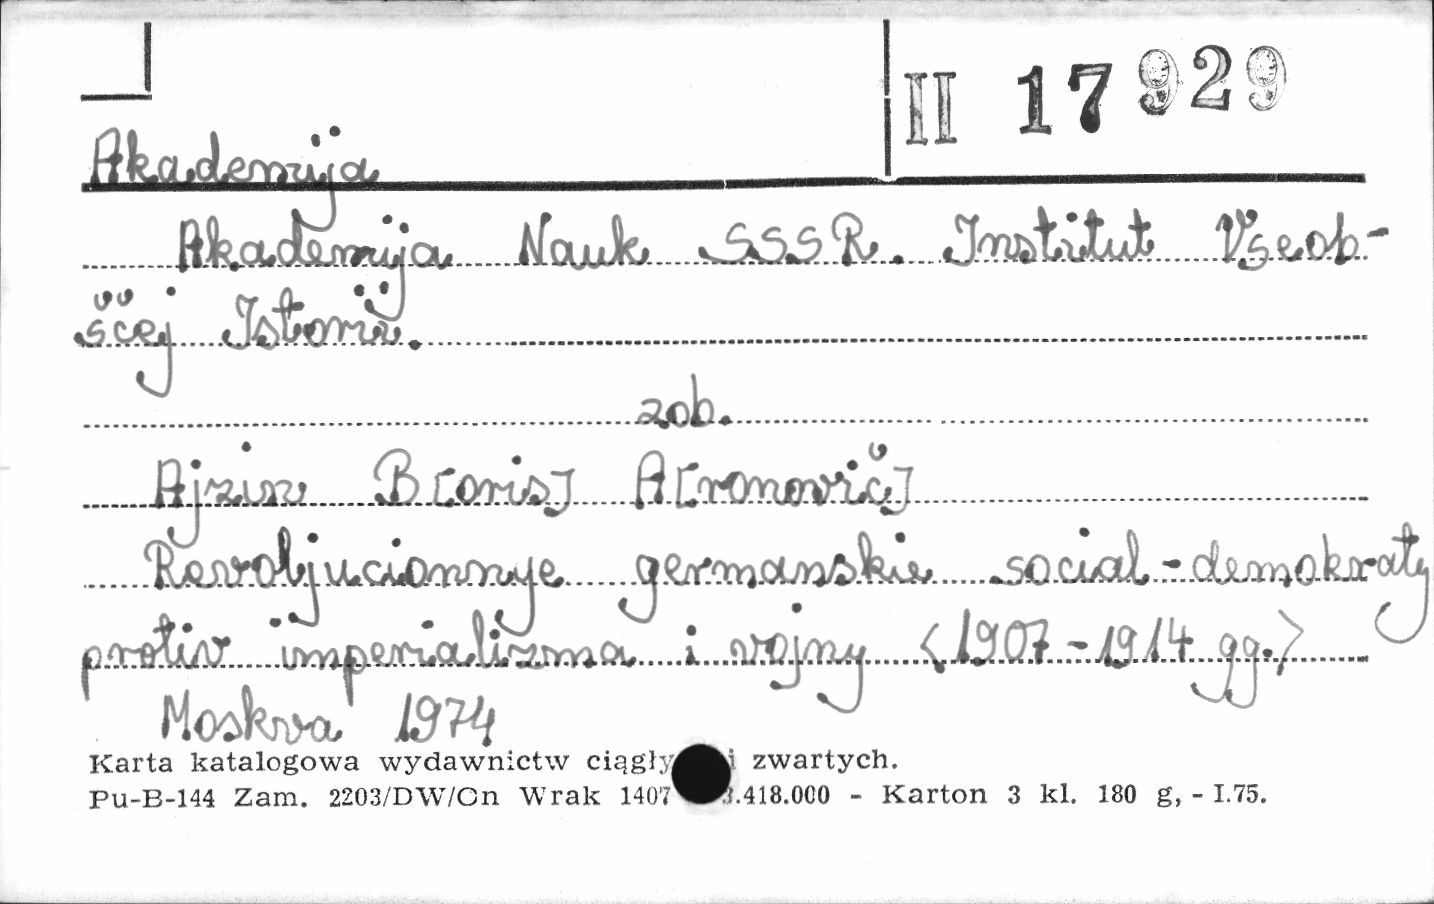 II 17929
Akademija
Akademija Nauk SSSR. Institut Vseob-
ščej Istorii.
zob.
Ajzin B[oris] A[ronovič]
Revoljucionnye germanskie social-demokraty
protiv imperializma i vojny <1907-1914 gg.>
Moskva 1974
Karta katalogowa wydawnictw ciągły i zwartych.
Pu-B-144 Zam. 2203/DW/Gn Wrak 1407 3.418.000 - Karton 3 kl. 180 g, - I.75.